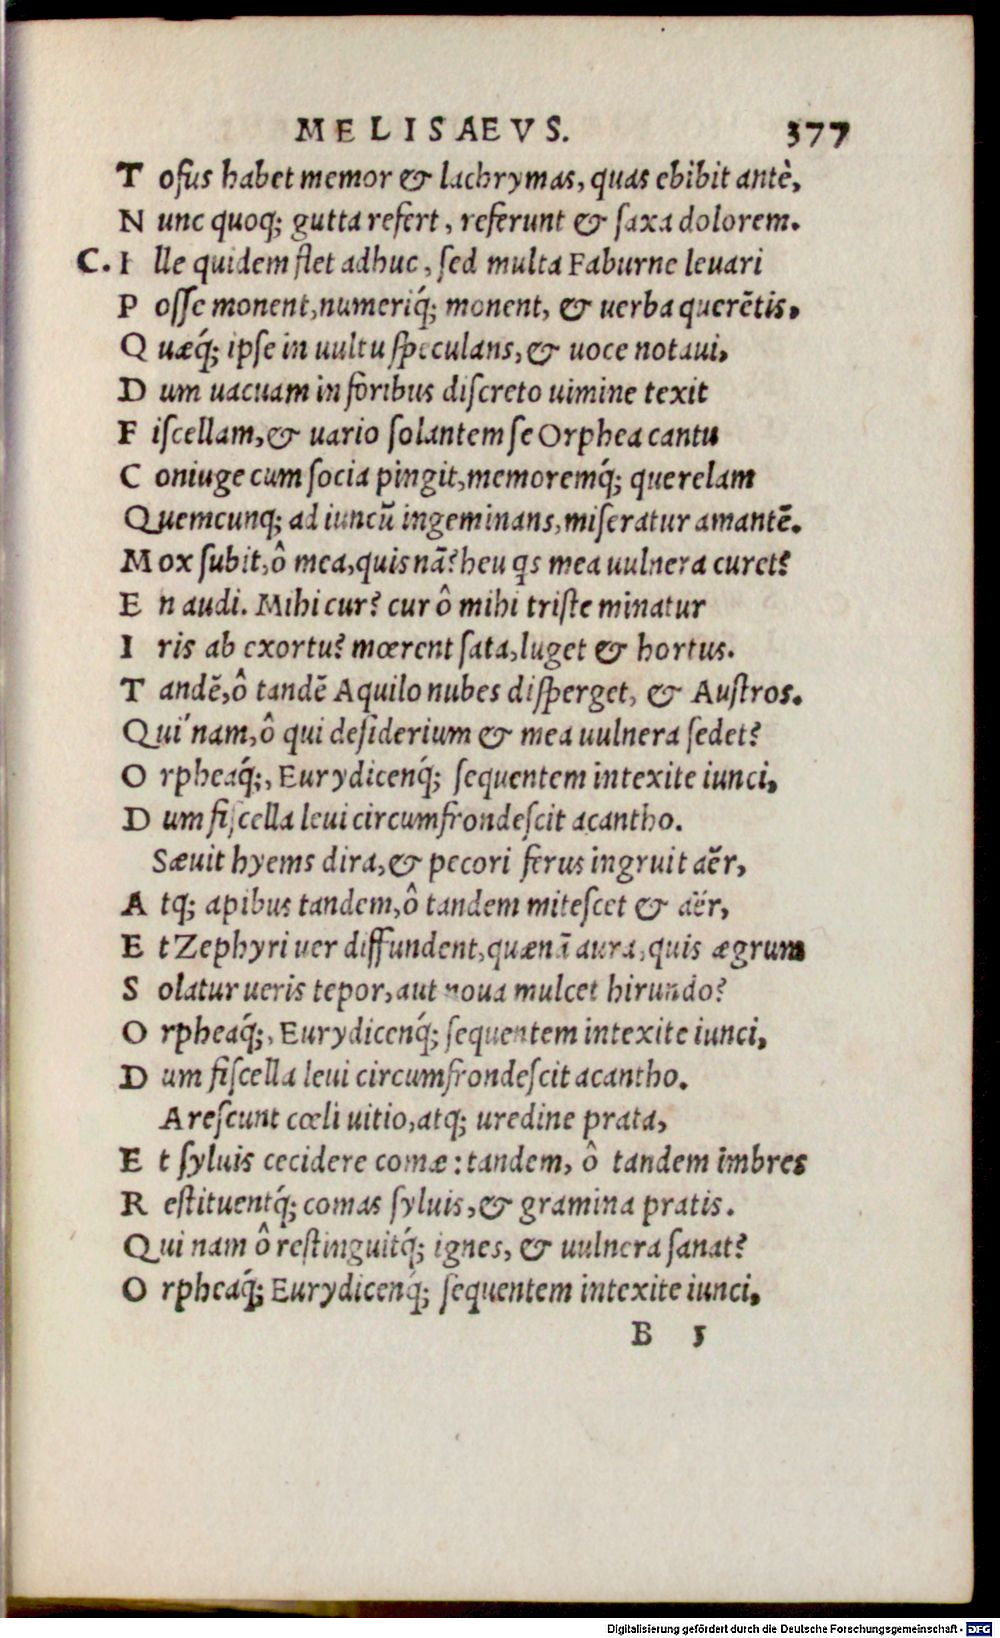 MELISAEVS. 377
Tofus habet memor & lachrymas, quas ebibit antè,
Nunc quoq; gutta refert, referunt & saxa dolorem.
C. Ille quidem flet adhuc, sed multa Faburne leuari
Posse monent, numeriq́; monent, & uerba querẽtis,
Quæq́; ipse in uultu speculans, & uoce notaui,
Dum uacuam in foribus discreto uimine texit
Fiscellam, & uario solantem se Orphea cantu
Coniuge cum socia pingit, memoremq́; querelam
Quemcunq; ad iuncũ ingeminans, miseratur amantẽ.
Mox subit, ô mea, quis nã? heu qs mea uulnera curet?
En audi. Mihi cur? cur ô mihi triste minatur
Iris ab exortu? mœrent sata, luget & hortus.
Tandẽ, ô tandẽ Aquilo nubes disperget, & Austros.
Qui'nam, ô qui desiderium & mea uulnera sedet?
Orpheaq́;, Eurydicenq́; sequentem intexite iunci,
Dum fiscella leui circumfrondescit acantho.
Sæuit hyems dira, & pecori ferus ingruit aër,
Atq; apibus tandem, ô tandem mitescet & aër,
Et Zephyri uer diffundent, quænã aura, quis ægrum
Solatur ueris tepor, aut noua mulcet hirundo?
Orpheaq́;, Eurydicenq́; sequentem intexite iunci,
Dum fiscella leui circumfrondescit acantho.
Arescunt cœli uitio, atq; uredine prata,
Et syluis cecidere comæ: tandem, ô tandem imbres
Restituentq́; comas syluis, & gramina pratis.
Qui nam ô restinguitq́; ignes, & uulnera sanat?
Orpheaq́; Eurydicenq́; sequentem intexite iunci,
B 5
Digitalisierung gefördert durch die Deutsche Forschungsgemeinschaft - DFG